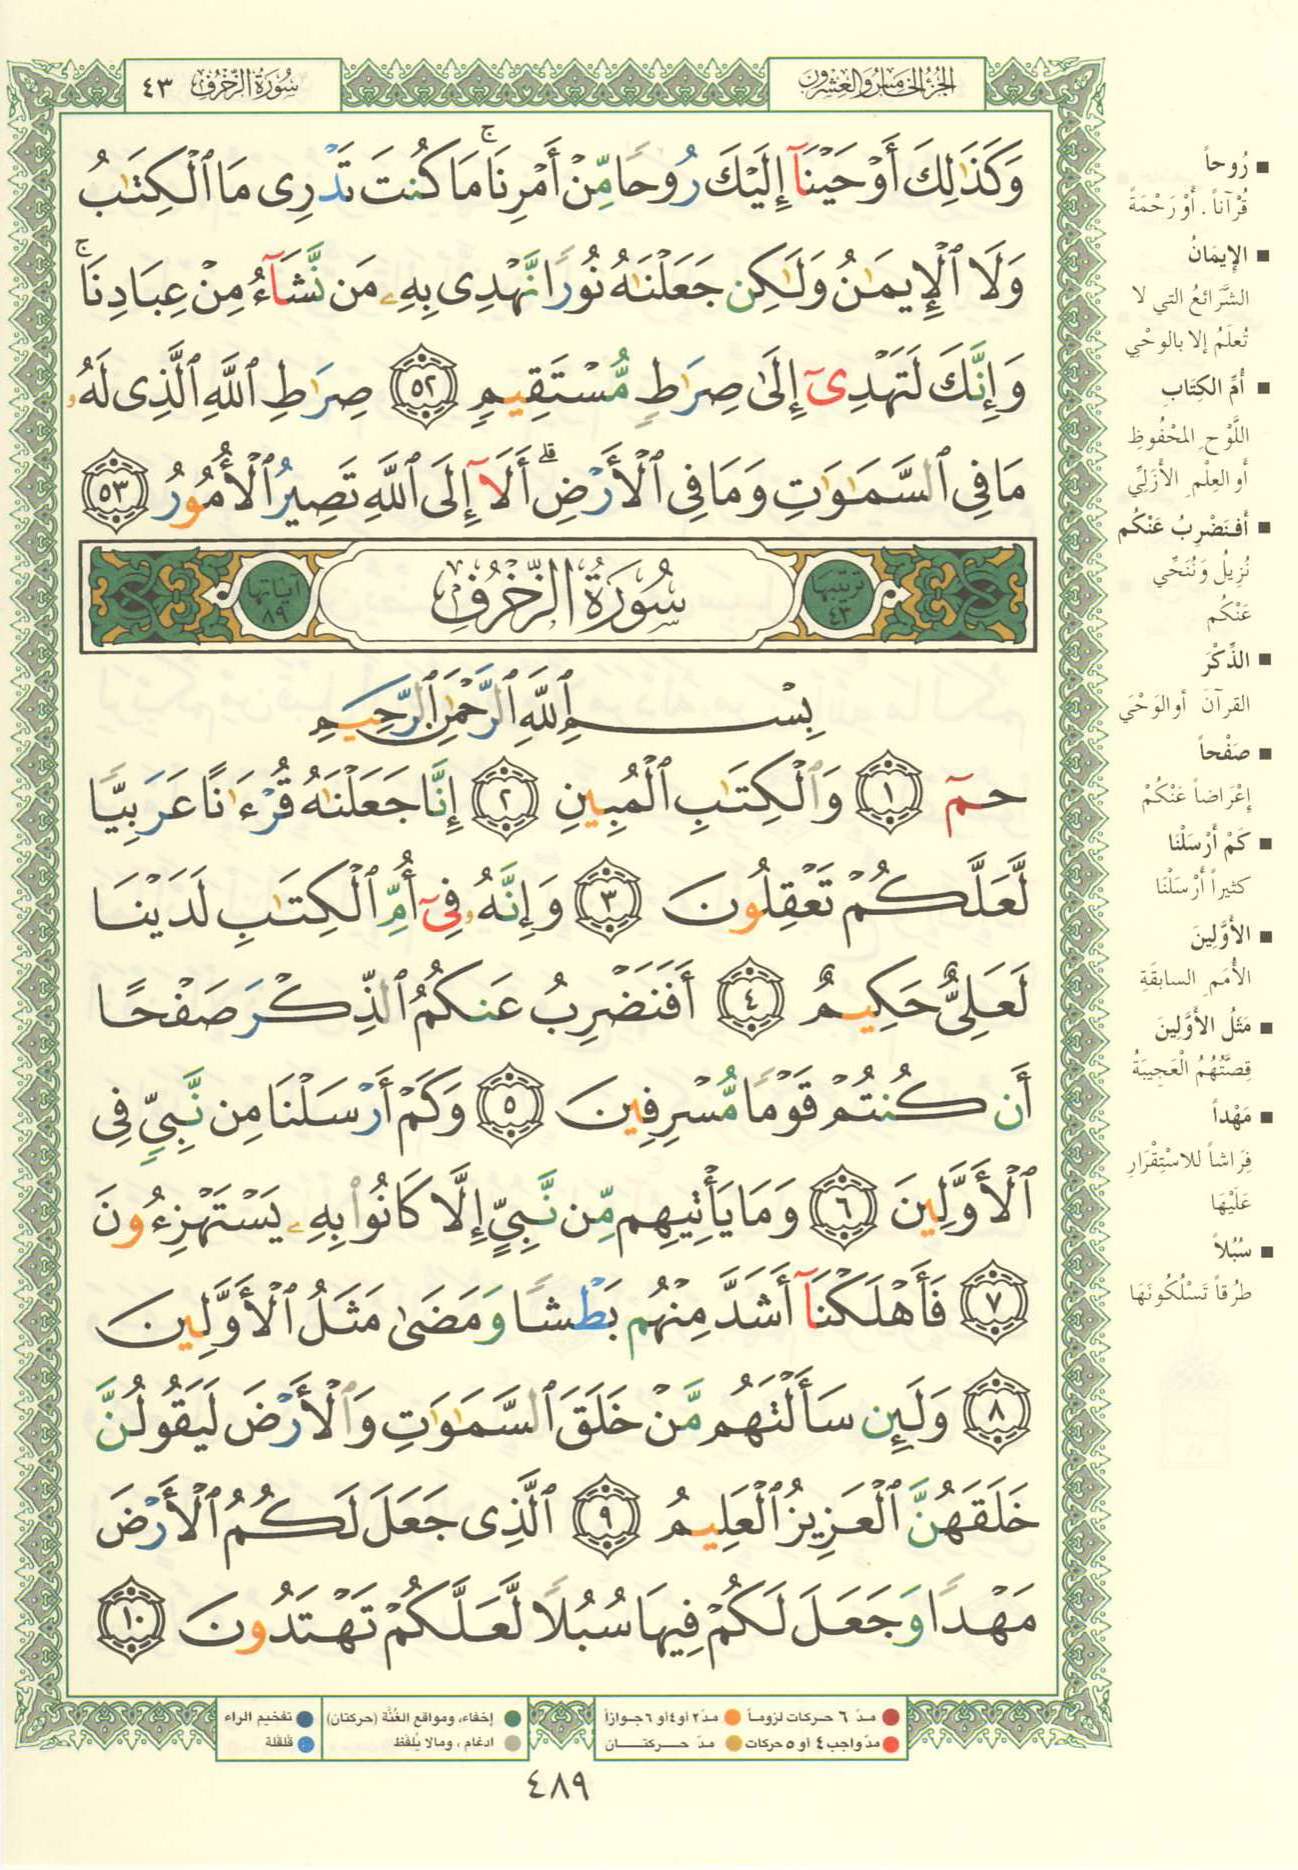 الجزء الخامس والعشرون
سُورَةُ الزُّخْرُفِ ٤٣
وَكَذَٰلِكَ أَوْحَيْنَآ إِلَيْكَ رُوحًا مِّنْ أَمْرِنَا ۚ مَا كُنتَ تَدْرِى مَا ٱلْكِتَٰبُ
وَلَا ٱلْإِيمَٰنُ وَلَٰكِن جَعَلْنَٰهُ نُورًا نَّهْدِى بِهِۦ مَن نَّشَآءُ مِنْ عِبَادِنَا ۚ
وَإِنَّكَ لَتَهْدِىٓ إِلَىٰ صِرَٰطٍ مُّسْتَقِيمٍ ٥٢ صِرَٰطِ ٱللَّهِ ٱلَّذِى لَهُۥ
مَا فِى ٱلسَّمَٰوَٰتِ وَمَا فِى ٱلْأَرْضِ ۗ أَلَآ إِلَى ٱللَّهِ تَصِيرُ ٱلْأُمُورُ ٥٣
ترتيبها ٤٣ سُورَةُ الزُّخْرُفِ آياتها ٨٩
بِسْمِ ٱللَّهِ ٱلرَّحْمَٰنِ ٱلرَّحِيمِ
حمٓ ١ وَٱلْكِتَٰبِ ٱلْمُبِينِ ٢ إِنَّا جَعَلْنَٰهُ قُرْءَٰنًا عَرَبِيًّا
لَّعَلَّكُمْ تَعْقِلُونَ ٣ وَإِنَّهُۥ فِىٓ أُمِّ ٱلْكِتَٰبِ لَدَيْنَا
لَعَلِىٌّ حَكِيمٌ ٤ أَفَنَضْرِبُ عَنكُمُ ٱلذِّكْرَ صَفْحًا
أَن كُنتُمْ قَوْمًا مُّسْرِفِينَ ٥ وَكَمْ أَرْسَلْنَا مِن نَّبِىٍّ فِى
ٱلْأَوَّلِينَ ٦ وَمَا يَأْتِيهِم مِّن نَّبِىٍّ إِلَّا كَانُوا۟ بِهِۦ يَسْتَهْزِءُونَ
٧ فَأَهْلَكْنَآ أَشَدَّ مِنْهُم بَطْشًا وَمَضَىٰ مَثَلُ ٱلْأَوَّلِينَ
٨ وَلَئِن سَأَلْتَهُم مَّنْ خَلَقَ ٱلسَّمَٰوَٰتِ وَٱلْأَرْضَ لَيَقُولُنَّ
خَلَقَهُنَّ ٱلْعَزِيزُ ٱلْعَلِيمُ ٩ ٱلَّذِى جَعَلَ لَكُمُ ٱلْأَرْضَ
مَهْدًا وَجَعَلَ لَكُمْ فِيهَا سُبُلًا لَّعَلَّكُمْ تَهْتَدُونَ ١٠
■ رُوحاً
قُرْآناً . أَوْ رَحْمَةً
■ الإِيمَانُ
الشَّرَائعُ التي لا
تُعلَمُ إلا بالوحْي
■ أُمِّ الكِتَابِ
اللَّوْحِ المحْفُوظِ
أو العِلْمِ الأَزَلِّي
■ أَفَنَضْرِبُ عَنْكُم
نُزِيلُ وَنُنَحِّي
عَنْكُم
■ الذِّكْرَ
القرآنَ أو الوَحْيَ
■ صَفْحاً
إِعْرَاضاً عَنْكُمْ
■ كَمْ أَرْسَلْنَا
كثيراً أَرْسَلْنَا
■ الأَوَّلِينَ
الأُمَمِ السابقَةِ
■ مَثَلُ الأَوَّلِينَ
قِصَّتُهُمُ الْعَجِيبَةُ
■ مَهْداً
فِرَاشاً للاسْتِقْرَارِ
عَلَيْهَا
■ سُبُلاً
طُرُقاً تَسْلُكُونَهَا
مدّ ٦ حركات لزوماً مدّ ٢ أو ٤ أو ٦ جوازاً
مدّ واجب ٤ أو ٥ حركات مدّ حركتان
إخفاء، ومواقع الغُنَّة (حركتان) تفخيم الراء
ادغام ، ومالا يُلفَظ قلقلة
٤٨٩